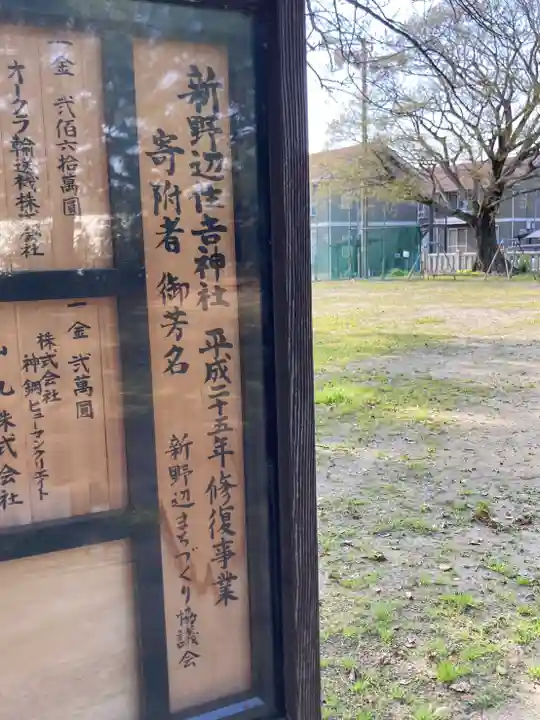 新野辺住吉神社 平成二十五年修復事業
寄附者 御芳名
新野辺まちづくり協議会
一金 弐佰六拾萬圓
オークラ輸送機株式会社
一金 弐萬圓
株式会社
神鋼ヒューマンクリエイト
株式会社